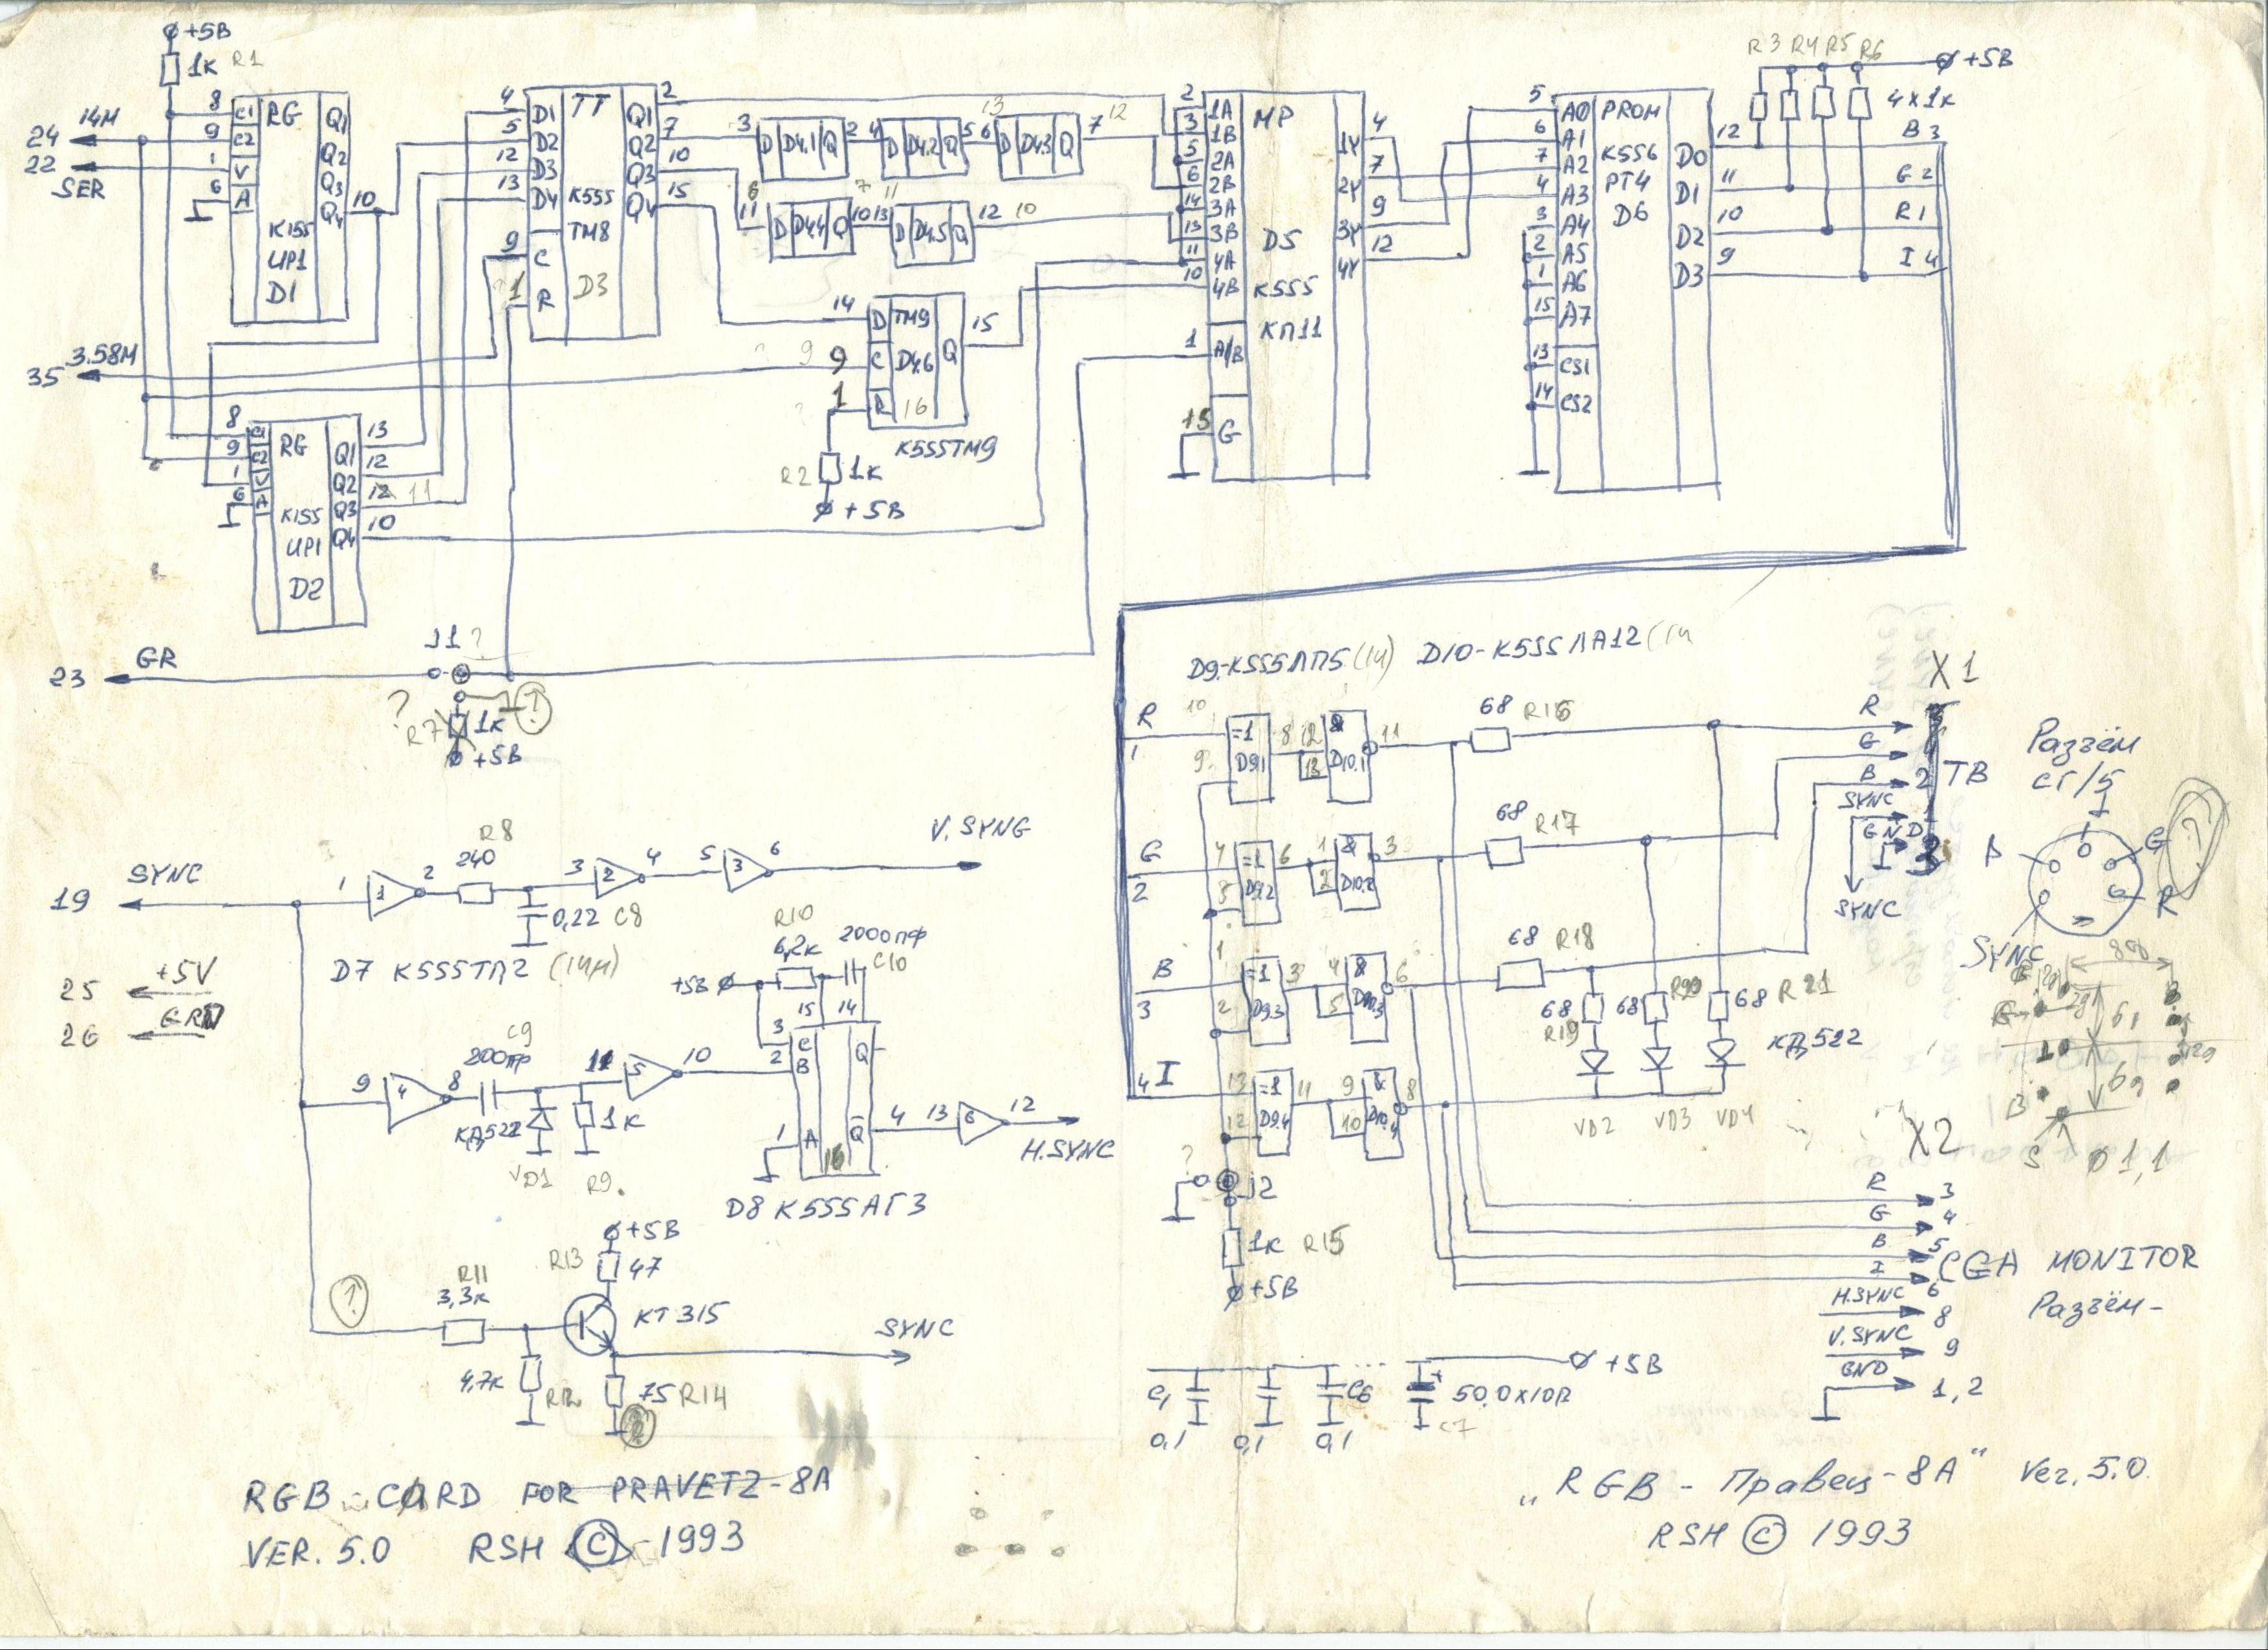 ⌀+5В
1к R1
24 14М
22 SER
8 C1 RG Q1
9 C2 Q2
1 V Q3
6 A Q4 10
К155
ИР1
D1
4 D1 TT Q1 2
5 D2 Q2 7
12 D3 К555 Q3 10
13 D4 ТМ8 Q4 15
9 C D3
1 R
3 D D4.1 Q 2 4 D D4.2 Q 5 6 13 D D4.3 Q 7 12
6 11 D D4.4 Q 10 7 13 11 D D4.5 Q 12 10
14 D ТМ9 15
9 9 C D4.6 Q
1 R 16
К555ТМ9
R2 1к
⌀+5В
2 1A MP
3 1B 1Y 4
5 2A
6 2B 2Y 7
14 3A
13 3B D5 3Y 9
11 4A
10 4B К555 4Y 12
КП11
1 A/B
+5 G
5 A0 PROM
6 A1 К556 D0 12
7 A2 РТ4 D1 11
4 A3 D6 D2 10
3 A4 D3 9
2 A5
1 A6
15 A7
13 CS1
14 CS2
R3 R4 R5 R6 ⌀+5В
4x1к
B 3
G 2
R 1
I 4
35 3.58М
8 C1 RG Q1 13
9 C2 Q2 12
1 V Q3 12 11
6 A К155 Q4 10
ИР1
D2
23 GR J1 ?
? R7 1к
⌀+5В
D9-К555ЛП5(14) D10-К555ЛА12(14
R 1 10 9 =1 D9.1 8 12 13 & D10.1 11 68 R16
G 2 4 5 =1 D9.2 6 1 2 & D10.2 3 68 R17
B 3 1 2 =1 D9.3 3 4 5 & D10.3 6 68 R18
I 4 13 12 =1 D9.4 11 9 10 & D10.4 8
68 R19 68 R20 68 R21
КД522
VD2 VD3 VD4
? J2
1к R15
⌀+5В
X1
R
G
B 2 ТВ
SYNC 1
GND 3
SYNC
Разъём
СГ/5
I
G
R
SYNC
19 SYNC 1 1 2 R8 240 3 2 4 5 3 6 V.SYNG
0,22 C8
D7 К555ТЛ2 (14м)
25 +5V
26 GRD
R10
6,2к 2000пф
C10
+5В⌀
9 4 8 C9 200пф 11 5 10
КД522 1к
VD1 R9
15 14
3 C Q
2 B
1 A Q 4 13 6 12 H.SYNC
16
D8 К555АГ3
⌀+5В
R13 47
R11 3,3к КТ315 SYNC
4,7к R12 75 R14
X2
R 3
G 4
B 5
I 6 CGA MONITOR
H.SYNC 8 Разъём-
V.SYNC 9
GND 1,2
S ⌀1,1
⌀+5В
C1 ... C6 + 50,0х10В
0,1 0,1 0,1 C7
RGB-CARD FOR PRAVETZ-8A
VER. 5.0 RSH © 1993
„RGB - Правец-8А" Ver. 5.0.
RSH © 1993